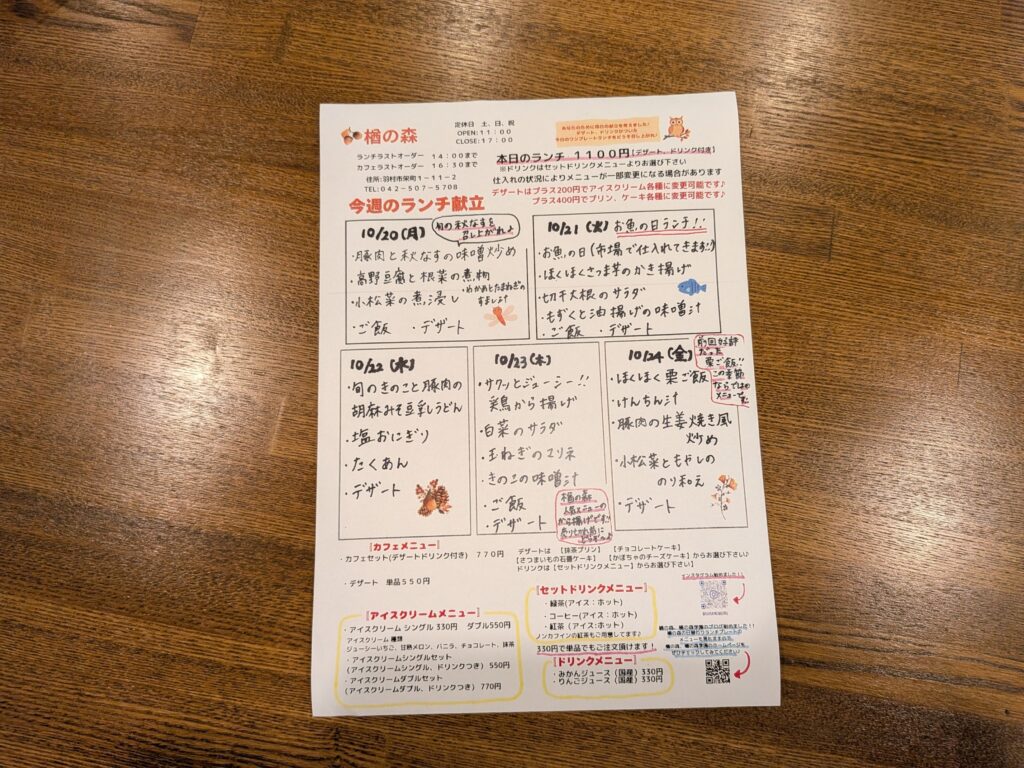 楢の森
定休日 土、日、祝
OPEN:11:00
CLOSE:17:00
ランチラストオーダー 14:00まで
カフェラストオーダー 16:30まで
住所:羽村市栄町1-11-2
TEL:042-507-5708
デザート、ドリンクがついた
本日のランチ 1100円【デザート、ドリンク付き】
※ドリンクはセットドリンクメニューよりお選び下さい
仕入れの状況によりメニューが一部変更になる場合があります
デザートはプラス200円でアイスクリーム各種に変更可能です♪
プラス400円でプリン、ケーキ各種に変更可能です♪
今週のランチ献立
10/20(月)
旬の秋なすを
召し上がれ♪
・豚肉と秋なすの味噌炒め
・高野豆腐と根菜の煮物
・わかめとたまねぎの
すまし汁
・小松菜の煮浸し
・ご飯 ・デザート
10/21(火) お魚の日ランチ!!
・お魚の日(市場で仕入れてきます!!)
・ほくほくさつま芋のかき揚げ
・切干大根のサラダ
・もずくと油揚げの味噌汁
・ご飯 ・デザート
10/22(水)
・旬のきのこと豚肉の
胡麻みそ豆乳うどん
・塩おにぎり
・たくあん
・デザート
10/23(木)
・サクッとジューシー!!
鶏から揚げ
・白菜のサラダ
・玉ねぎのマリネ
・きのこの味噌汁
・ご飯
・デザート
楢の森
人気メニューの
から揚げです!!
売り切れ前に
10/24(金)
前回好評
だった
栗ご飯!!
この季節
ならではの
メニューです
・ほくほく栗ご飯
・けんちん汁
・豚肉の生姜焼き風
炒め
・小松菜ともやしの
のり和え
・デザート
[カフェメニュー]
・カフェセット(デザートドリンク付き) 770円
・デザート 単品550円
デザートは 【抹茶プリン】 【チョコレートケーキ】
【さつまいもの石畳ケーキ】 【かぼちゃのチーズケーキ】からお選び下さい♪
ドリンクは【セットドリンクメニュー】からお選び下さい♪
[アイスクリームメニュー]
・アイスクリーム シングル 330円 ダブル550円
アイスクリーム 種類
ジューシーいちご、甘熟メロン、バニラ、チョコレート、抹茶
・アイスクリームシングルセット
(アイスクリームシングル、ドリンクつき) 550円
・アイスクリームダブルセット
(アイスクリームダブル、ドリンクつき) 770円
[セットドリンクメニュー]
・緑茶(アイス:ホット)
・コーヒー(アイス:ホット)
・紅茶(アイス:ホット)
ノンカフェインの紅茶もご用意してます♪
330円で単品でもご注文頂けます!
[ドリンクメニュー]
・みかんジュース(国産)330円
・りんごジュース(国産)330円
インスタグラム始めました!!
楢の森、楢の森学園のブログ始めました!!
楢の森の日替わりランチプレートの